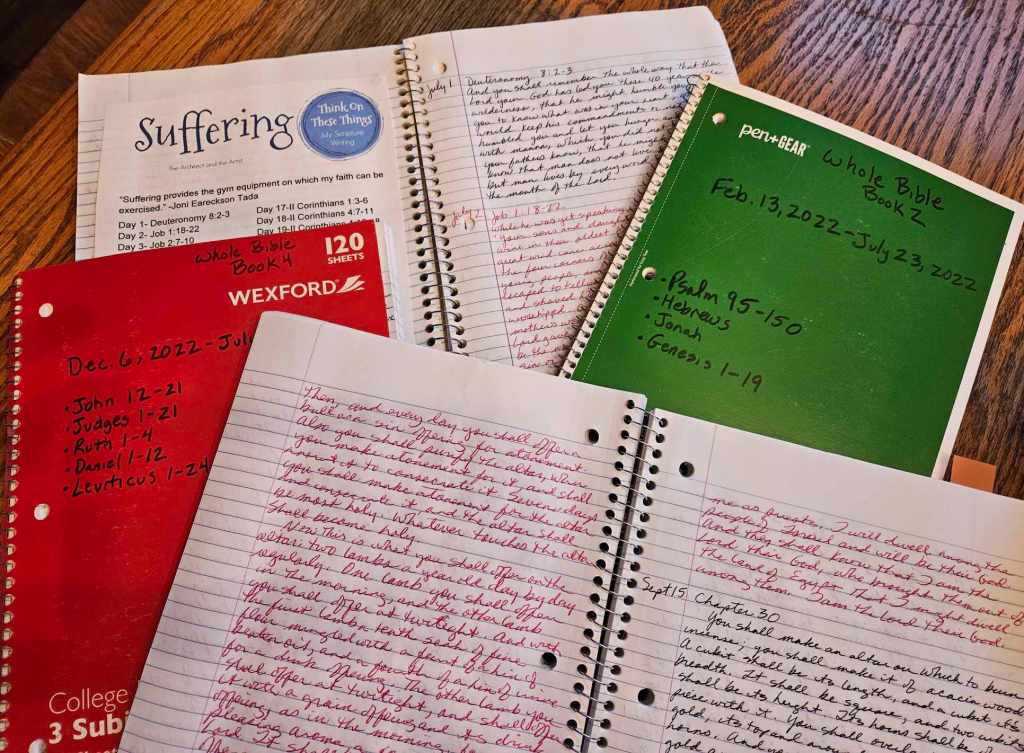 Suffering
Think On
These Things
July Scripture
Writing
The Architect and the Artist
"Suffering provides the gym equipment on which my faith can be
exercised." -Joni Eareckson Tada
Day 1- Deuteronomy 8:2-3
Day 2- Job 1:18-22
Day 3- Job 2:7-10
Day 17-II Corinthians 1:3-6
Day 18-II Corinthians 4:7-11
July 1
Deuteronomy 8:2-3
And you shall remember the whole way that the
Lord your God has led you these 40 years
wilderness, that he might humble you
you to know what was in your heart
would keep his commandments
humbled you and let you hunger
with manna, which you did not
your fathers know, that he might
know that man does not live
but man lives by every word
the mouth of the Lord
July 2
Job 1:18-22
While he was yet speaking
your sons and daughters
in their oldest
great wind came
the four corners
escaped to tell
and shaved
worshipped
mother's
Lord gave
be the
pen+GEAR
Whole Bible
Book 2
Feb. 13, 2022-July 23, 2022
• Psalm 95-150
• Hebrews
• Jonah
• Genesis 1-19
Whole Bible
Book 4
120
SHEETS
WEXFORD
Dec. 6, 2022-Jul
• John 12-21
• Judges 1-21
• Ruth 1-4
• Daniel 1-12
• Leviticus 1-24
College
3 Sub
Then, and every day you shall offer a
bull as a sin offering for atonement.
Also you shall purify the altar, when
you make atonement for it, and shall
anoint it to consecrate it. Seven days
you shall make atonement for the altar
and consecrate it, and the altar shall
be most holy. Whatever touches the altar
shall become holy.
Now this is what you shall offer on the
altar: two lambs a year old day by day
regularly. One lamb you shall offer
in the morning, and the other lamb
you shall offer at twilight. And with
the first lamb a tenth seah of fine
flour mingled with a fourth of a hin of
beaten oil, and a fourth of a hin of wine
for a drink offering. The other lamb you
shall offer at twilight, and shall offer
it with a grain offering and its drink
offering, as in the morning,
pleasing aroma, a food
Lord. It shall
me as priests. I will dwell among the
people of Israel and will be their God.
And they shall know that I am the
Lord their God, who brought them out of
the land of Egypt that I might dwell
among them. I am the Lord their God.
Sept 15
Chapter 30
You shall make an altar on which to burn
incense; you shall make it of acacia wood.
A cubit shall be its length, and a cubit its
breadth. It shall be square, and two cubits
shall be its height. Its horns shall be one
piece with it. You shall overlay
gold, its top and
horns. And